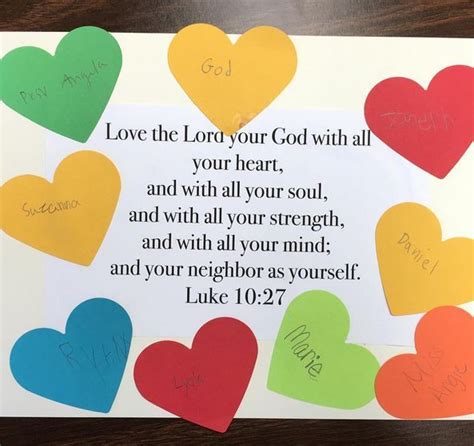 God
Angela
Love the Lord your God with all
your heart,
and with all your soul,
and with all your strength,
and with all your mind;
and your neighbor as yourself.
Luke 10:27
Suzanna
Daniel
Marie
Miss
Angie